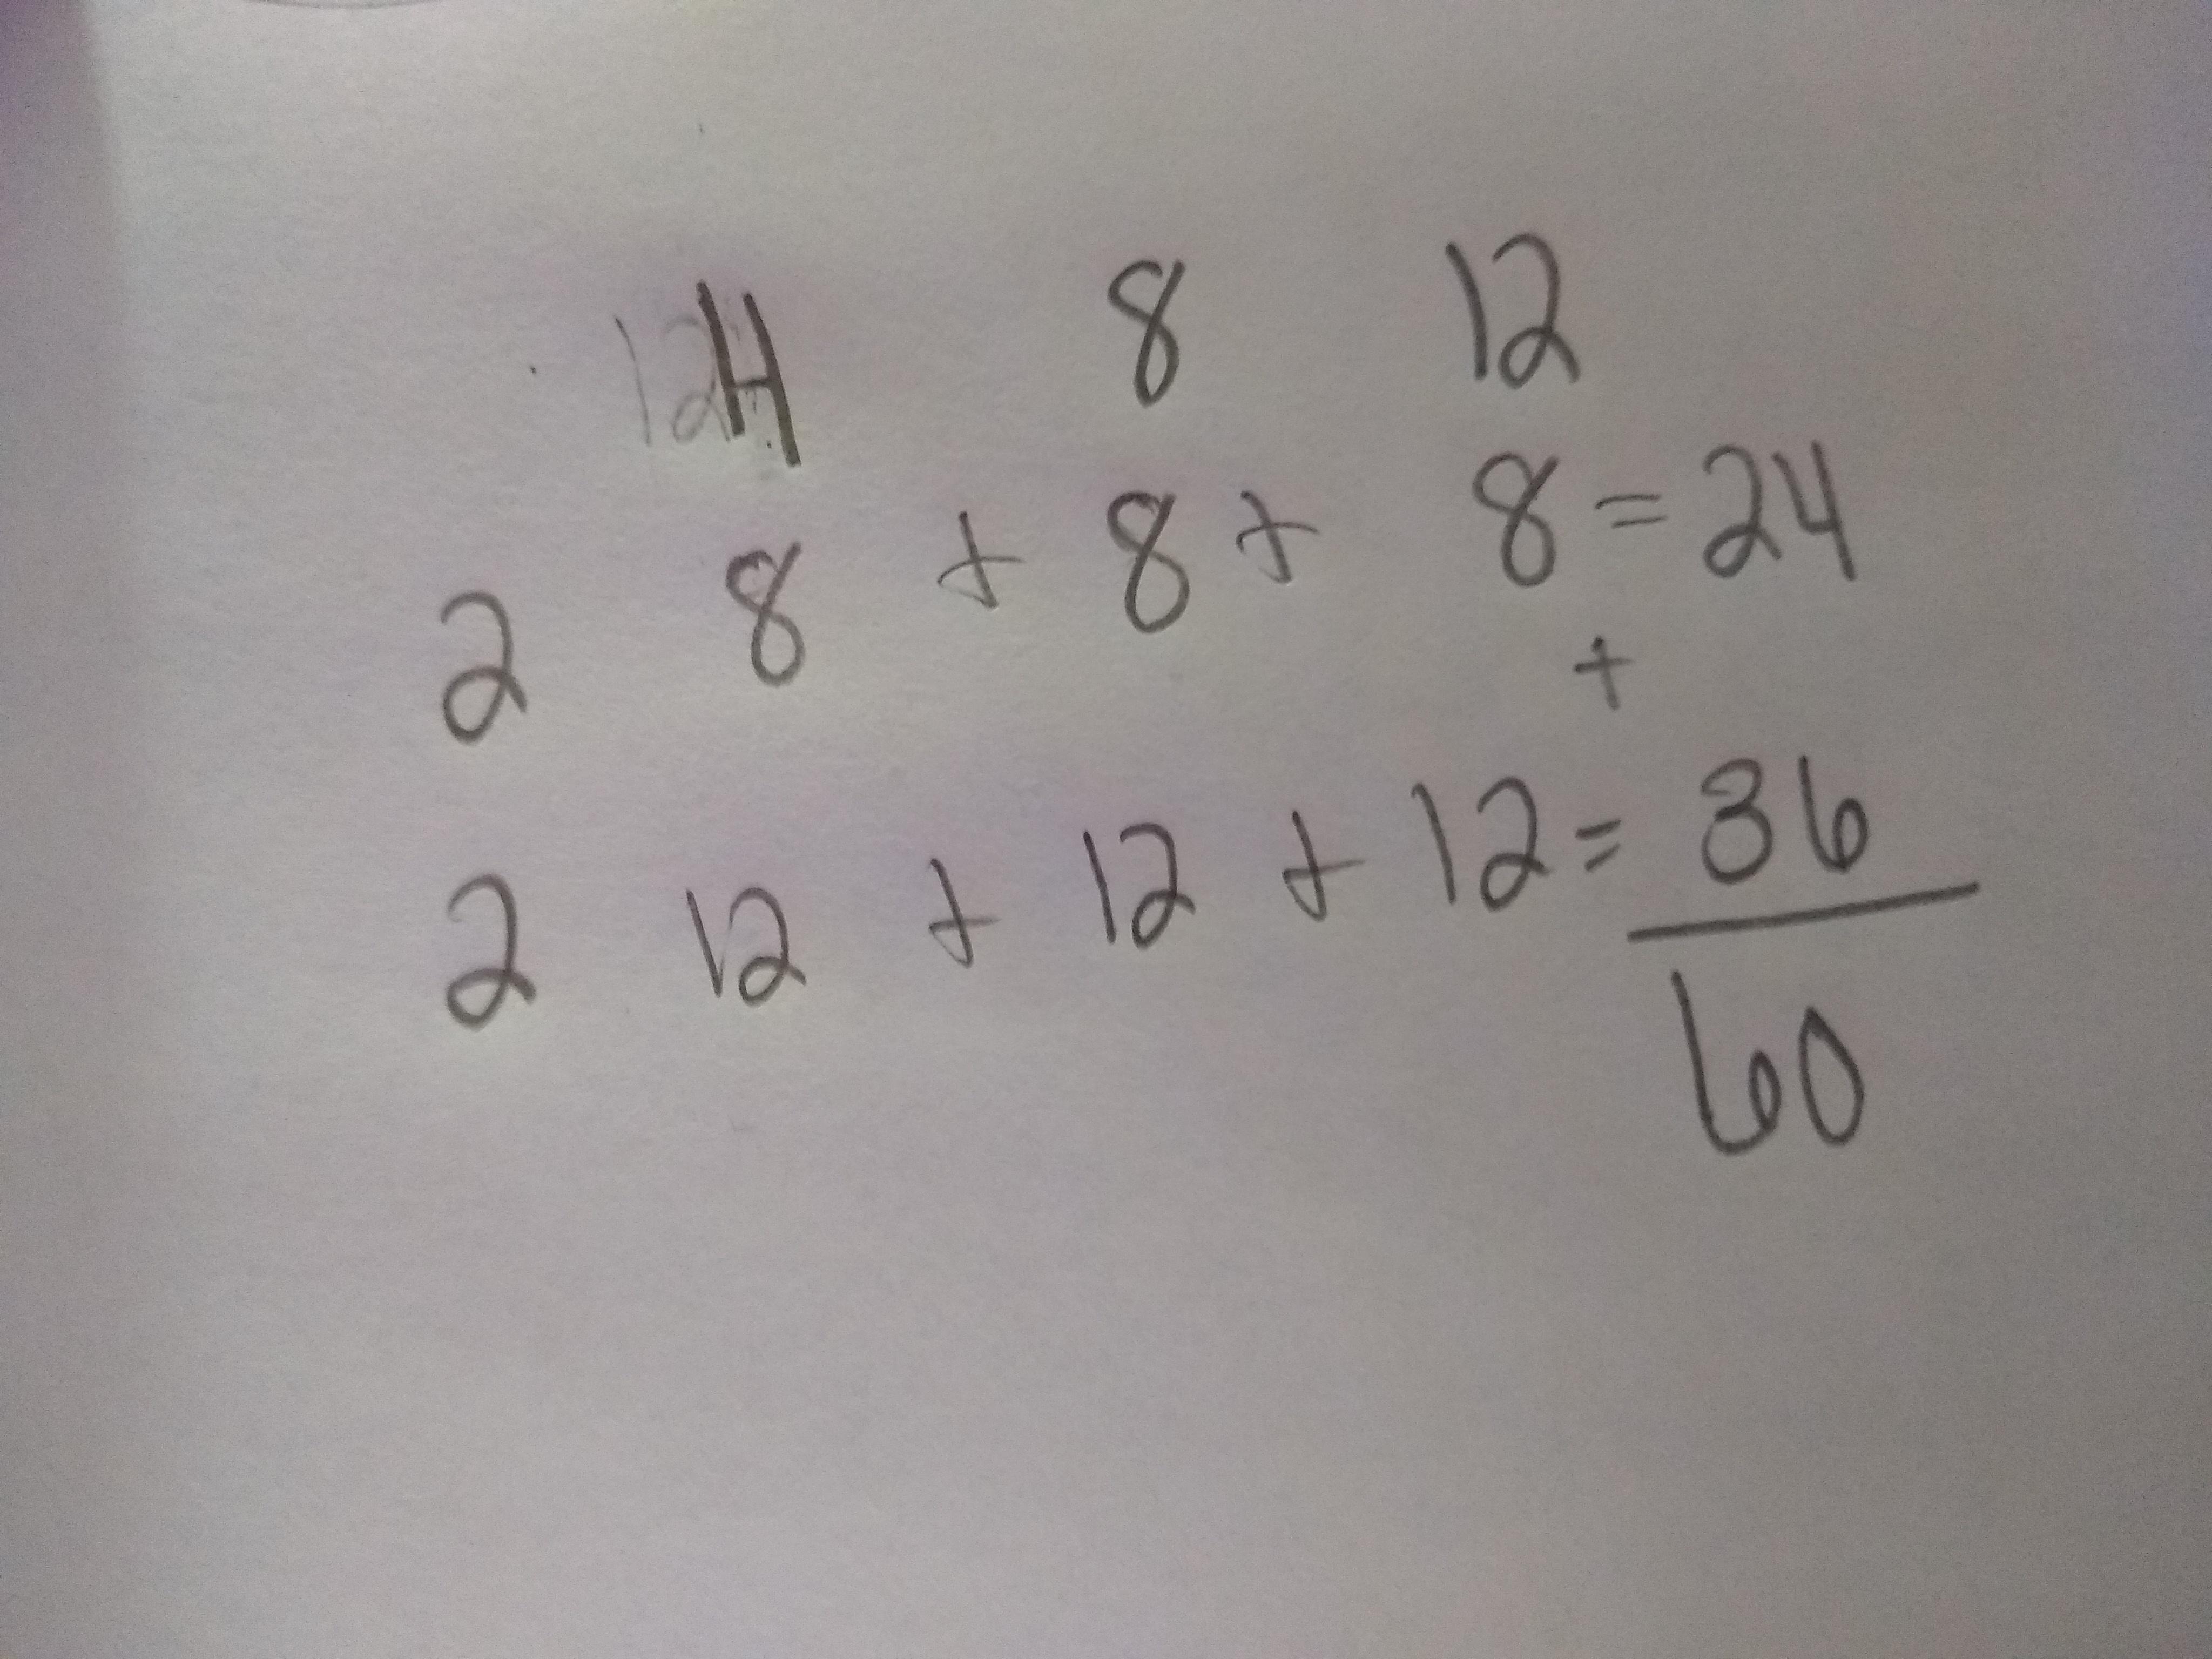 4 8 12
2 8 + 8 + 8 = 24
+
2 12 + 12 + 12 = 36
60